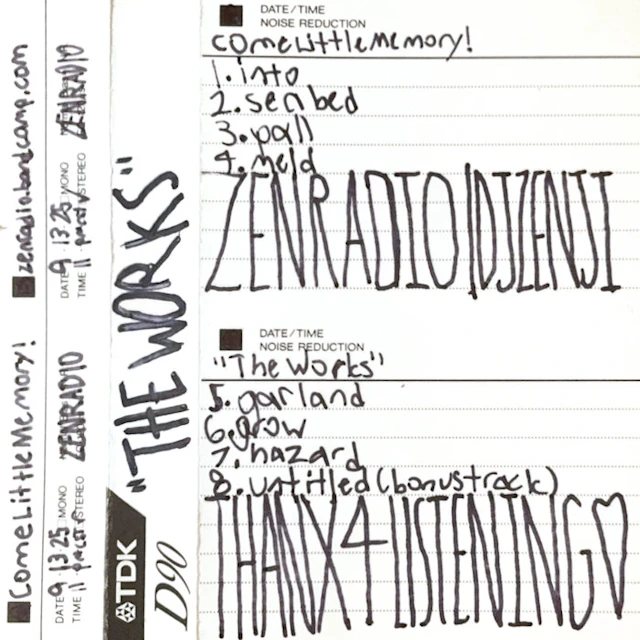 DATE/TIME
NOISE REDUCTION
comeLittleMemory!
1. into
2. senbed
3. pall
4. meld
ZENRADIO|DJZENJI
DATE/TIME
NOISE REDUCTION
"The Works"
5. garland
6. grow
7. hazard
8. untitled (bonustrack)
THANX 4 LISTENING♡
"THE WORKS"
TDK
D90
zenradio.bandcamp.com
ZENRADIO
DATE 9.13.25 MONO
TIME 11 STEREO
ComeLittleMemory!
ZENRADIO
DATE 9.13.25 MONO
TIME 11 STEREO